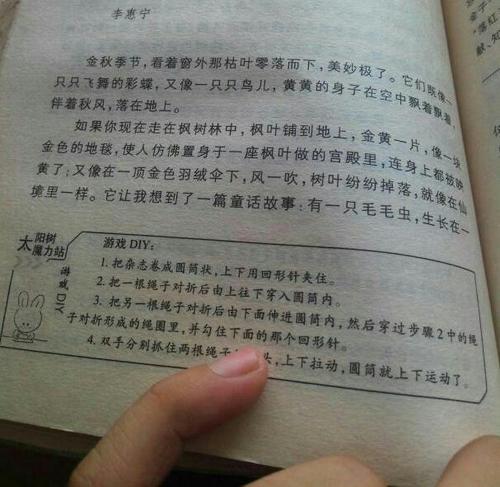 李惠宁
金秋季节，看着窗外那枯叶零落而下，美妙极了。它们既像一
只只飞舞的彩蝶，又像一只只鸟儿，黄黄的身子在空中飘着飘着，
伴着秋风，落在地上。
如果你现在走在枫树林中，枫叶铺到地上，金黄一片，像一块
金色的地毯，使人仿佛置身于一座枫叶做的宫殿里，连身上都被映
黄了；又像在一顶金色羽绒伞下，风一吹，树叶纷纷掉落，就像在仙
境里一样。它让我想到了一篇童话故事：有一只毛毛虫，生长在一
太阳树
魔力站
游戏DIY
游戏DIY：
1. 把杂志卷成圆筒状，上下用回形针夹住。
2. 把一根绳子对折后由上往下穿入圆筒内。
3. 把另一根绳子对折后由下面伸进圆筒内，然后穿过步骤2中的绳
子对折形成的绳圈里，并勾住下面的那个回形针。
4. 双手分别抓住两根绳子头，上下拉动，圆筒就上下运动了。